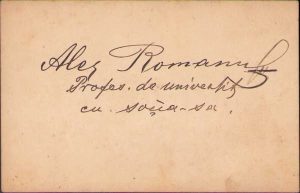 Alex Romanul
Profes. de universit
cu soția-sa.